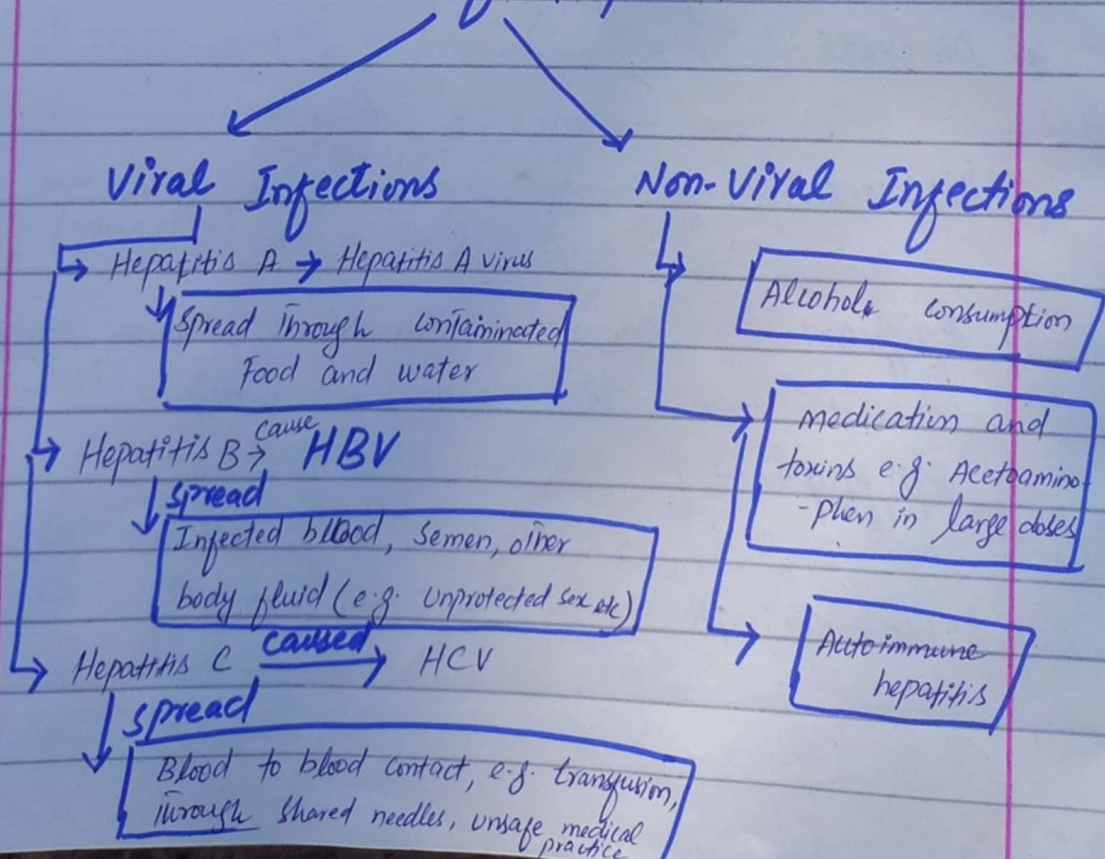 Viral Infections
Hepatitis A → Hepatitis A virus
Spread through contaminated
Food and water
Hepatitis B → cause HBV
spread
Infected blood, semen, other
body fluid (e.g. unprotected sex etc)
Hepatitis C caused → HCV
spread
Blood to blood contact, e.g. transfusion,
through shared needles, unsafe medical
practice
Non-Viral Infections
Alcohol consumption
medication and
toxins e.g. Acetoamino-
-phen in large doses
Autoimmune
hepatitis